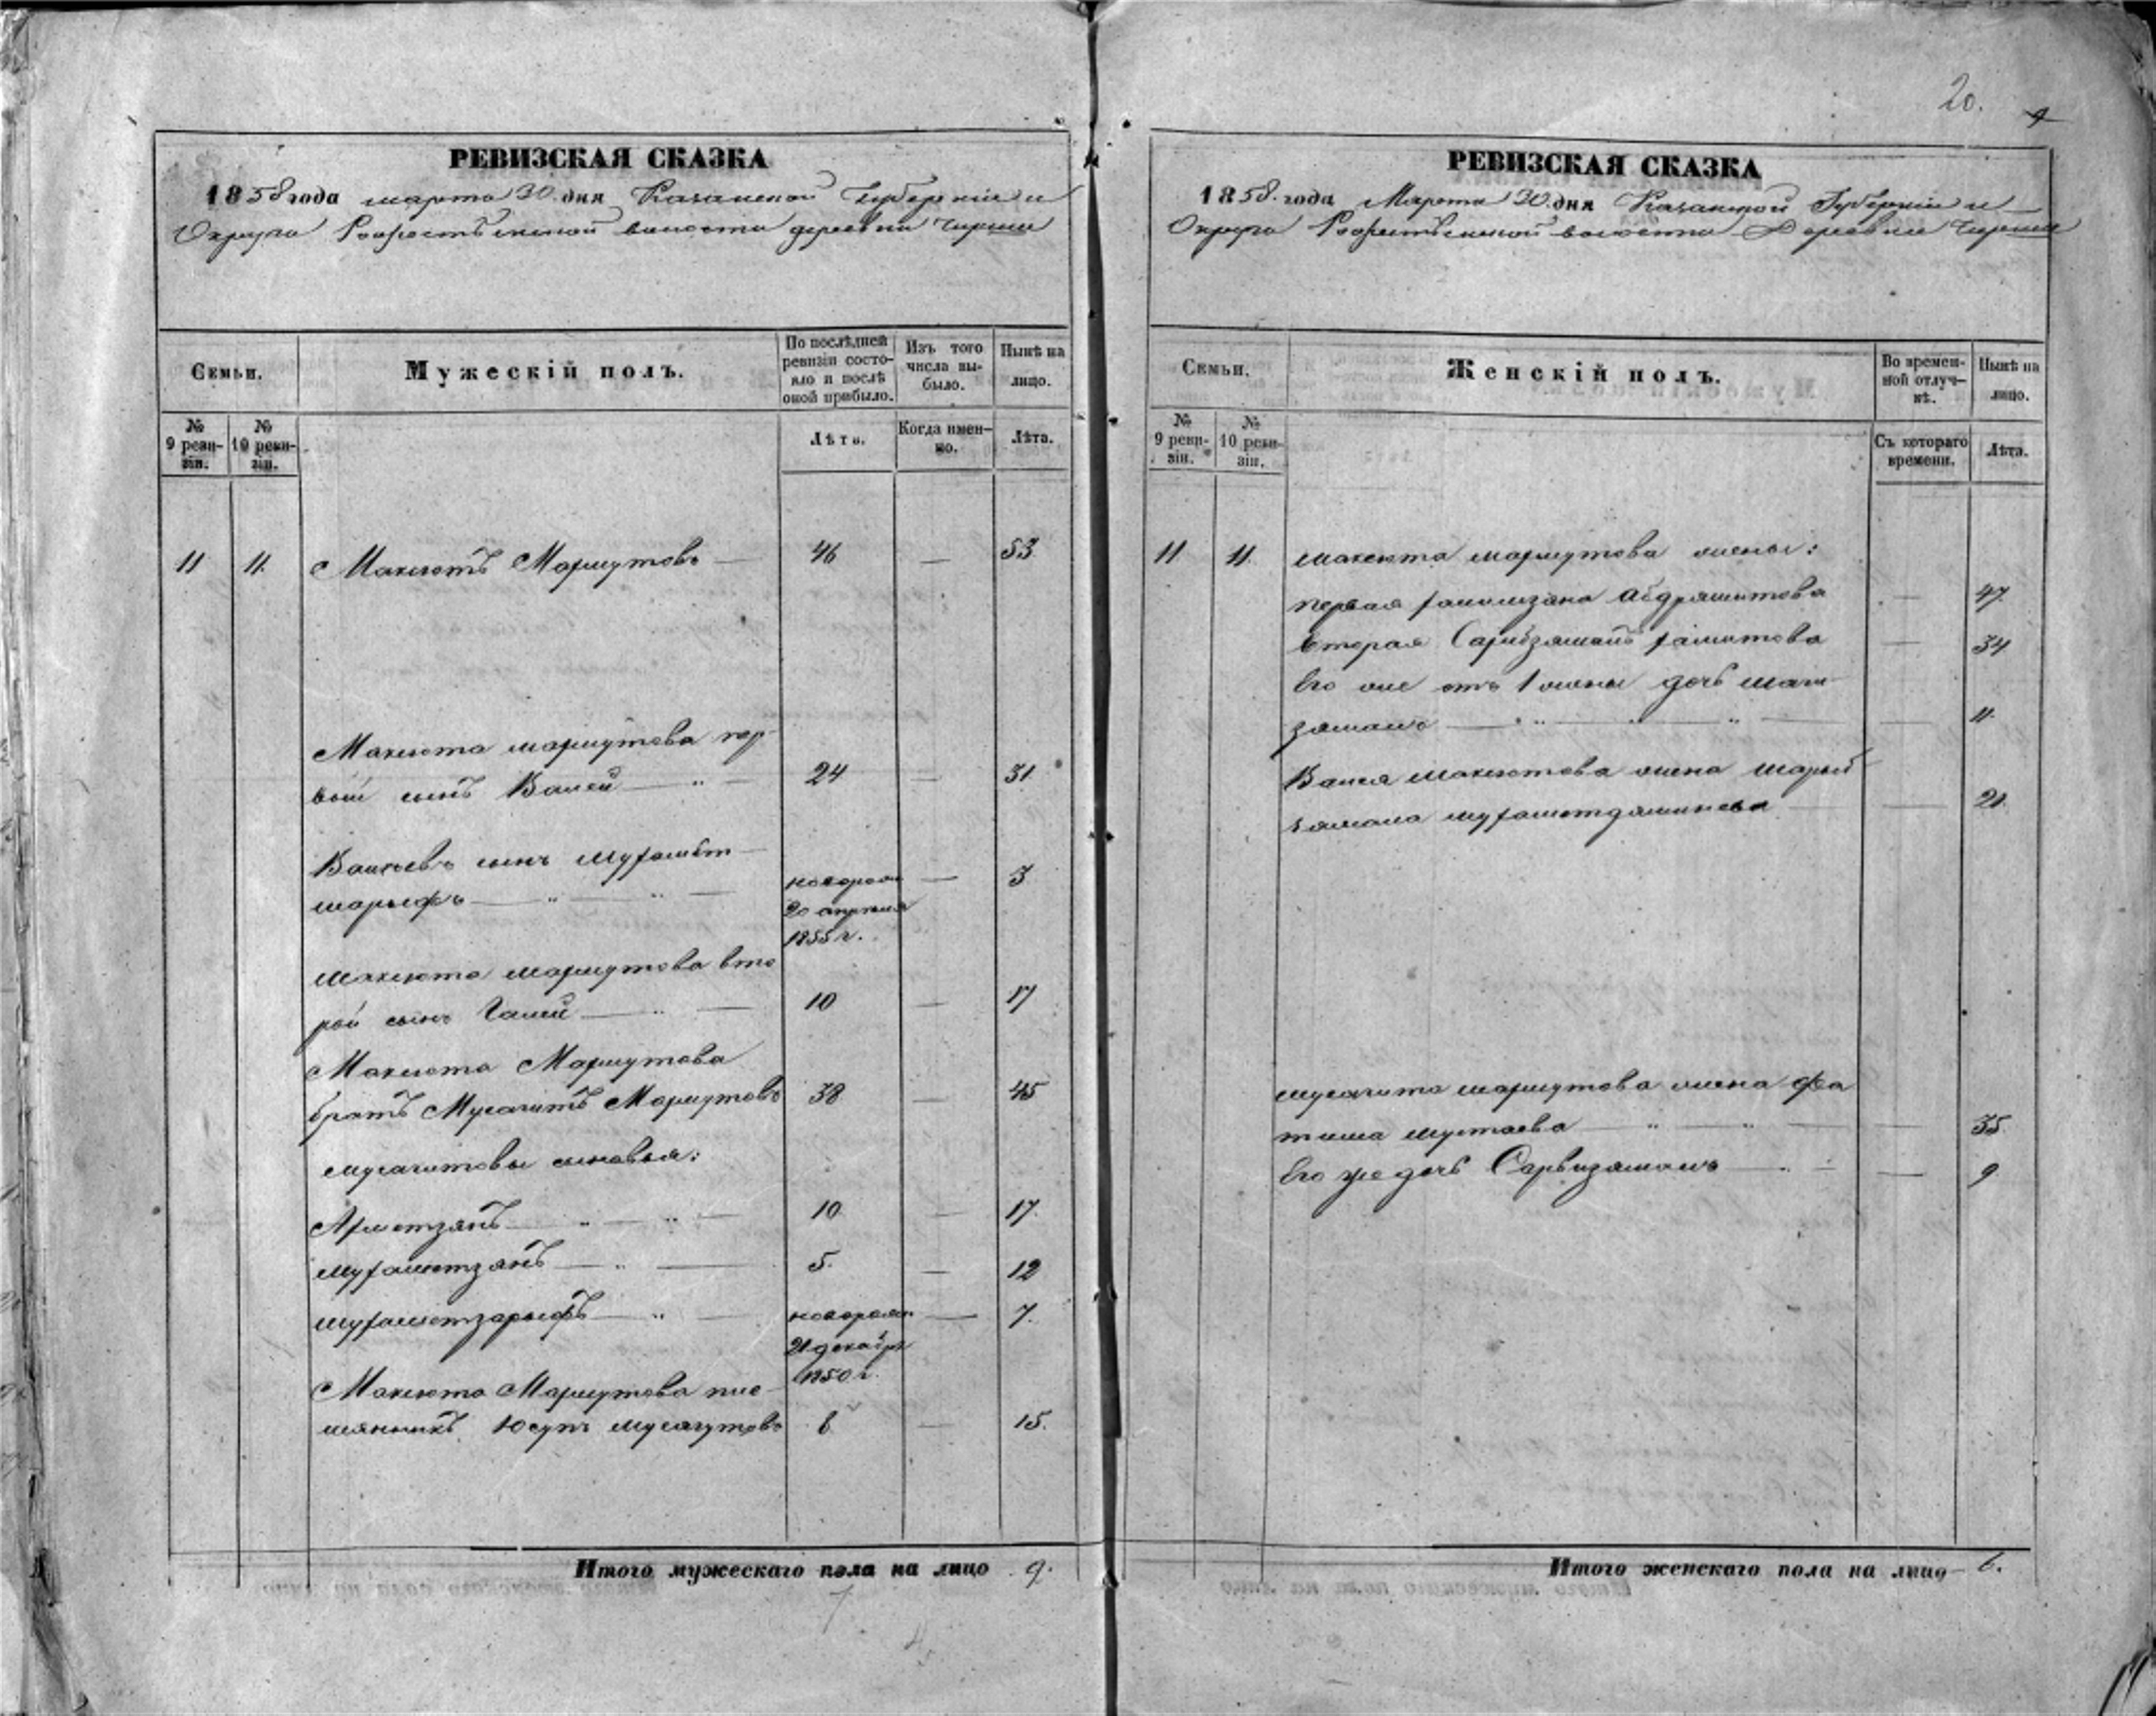 20.
РЕВИЗСКАЯ СКАЗКА
1858 года марта 30 дня Казанской Губерніи и
Округа волости деревни
Семьи.
Мужескій полъ.
По послѣдней ревизіи состояло и послѣ оной прибыло.
Изъ того числа выбыло.
Нынѣ на лицо.
№ 9 ревизіи.
№ 10 ревизіи.
Лѣта.
Когда именно.
Лѣта.
11 11. Макcютъ Махмутовъ 46 — 53
Макcюта Махмутова пер-
вый сынъ Валей 24 — 31
Валеевъ сынъ Мухамет-
шарыфъ новорож 20 апреля 1855 г. — 3
Макcюта Махмутова вто
рой сынъ Галей 10 — 17
Макcюта Махмутова
братъ Мусагитъ Махмутовъ 38 — 45
Мусагитовы сыновья:
Ахметзянъ 10 — 17.
Мухаметзянъ 5. — 12
Мухаметзарыфъ новорожд 21 декабр 1850 г. — 7.
Макcюта Махмутова пле-
мянникъ Юсупъ — 15.
Итого мужескаго пола на лицо 9.
РЕВИЗСКАЯ СКАЗКА
1858. года Марта 30 дня Казанской Губерніи и
Округа волости Деревни
Семьи.
Женскій полъ.
Во временной отлучкѣ.
Нынѣ на лицо.
№ 9 ревизіи.
№ 10 ревизіи.
Съ котораго времени.
Лѣта.
11 11. Макcюта Махмутова жены:
первая Абдряшитова — 47.
вторая — 34
Его же отъ 1 жены дочь Маги-
зямалъ — 11.
Валея Макcютова жена
— 21.
Мусагита Махмутова жена Фа
тима Мустаева — 35.
Его же дочь Сарвизямалъ — 9
Итого женскаго пола на лицо 6.